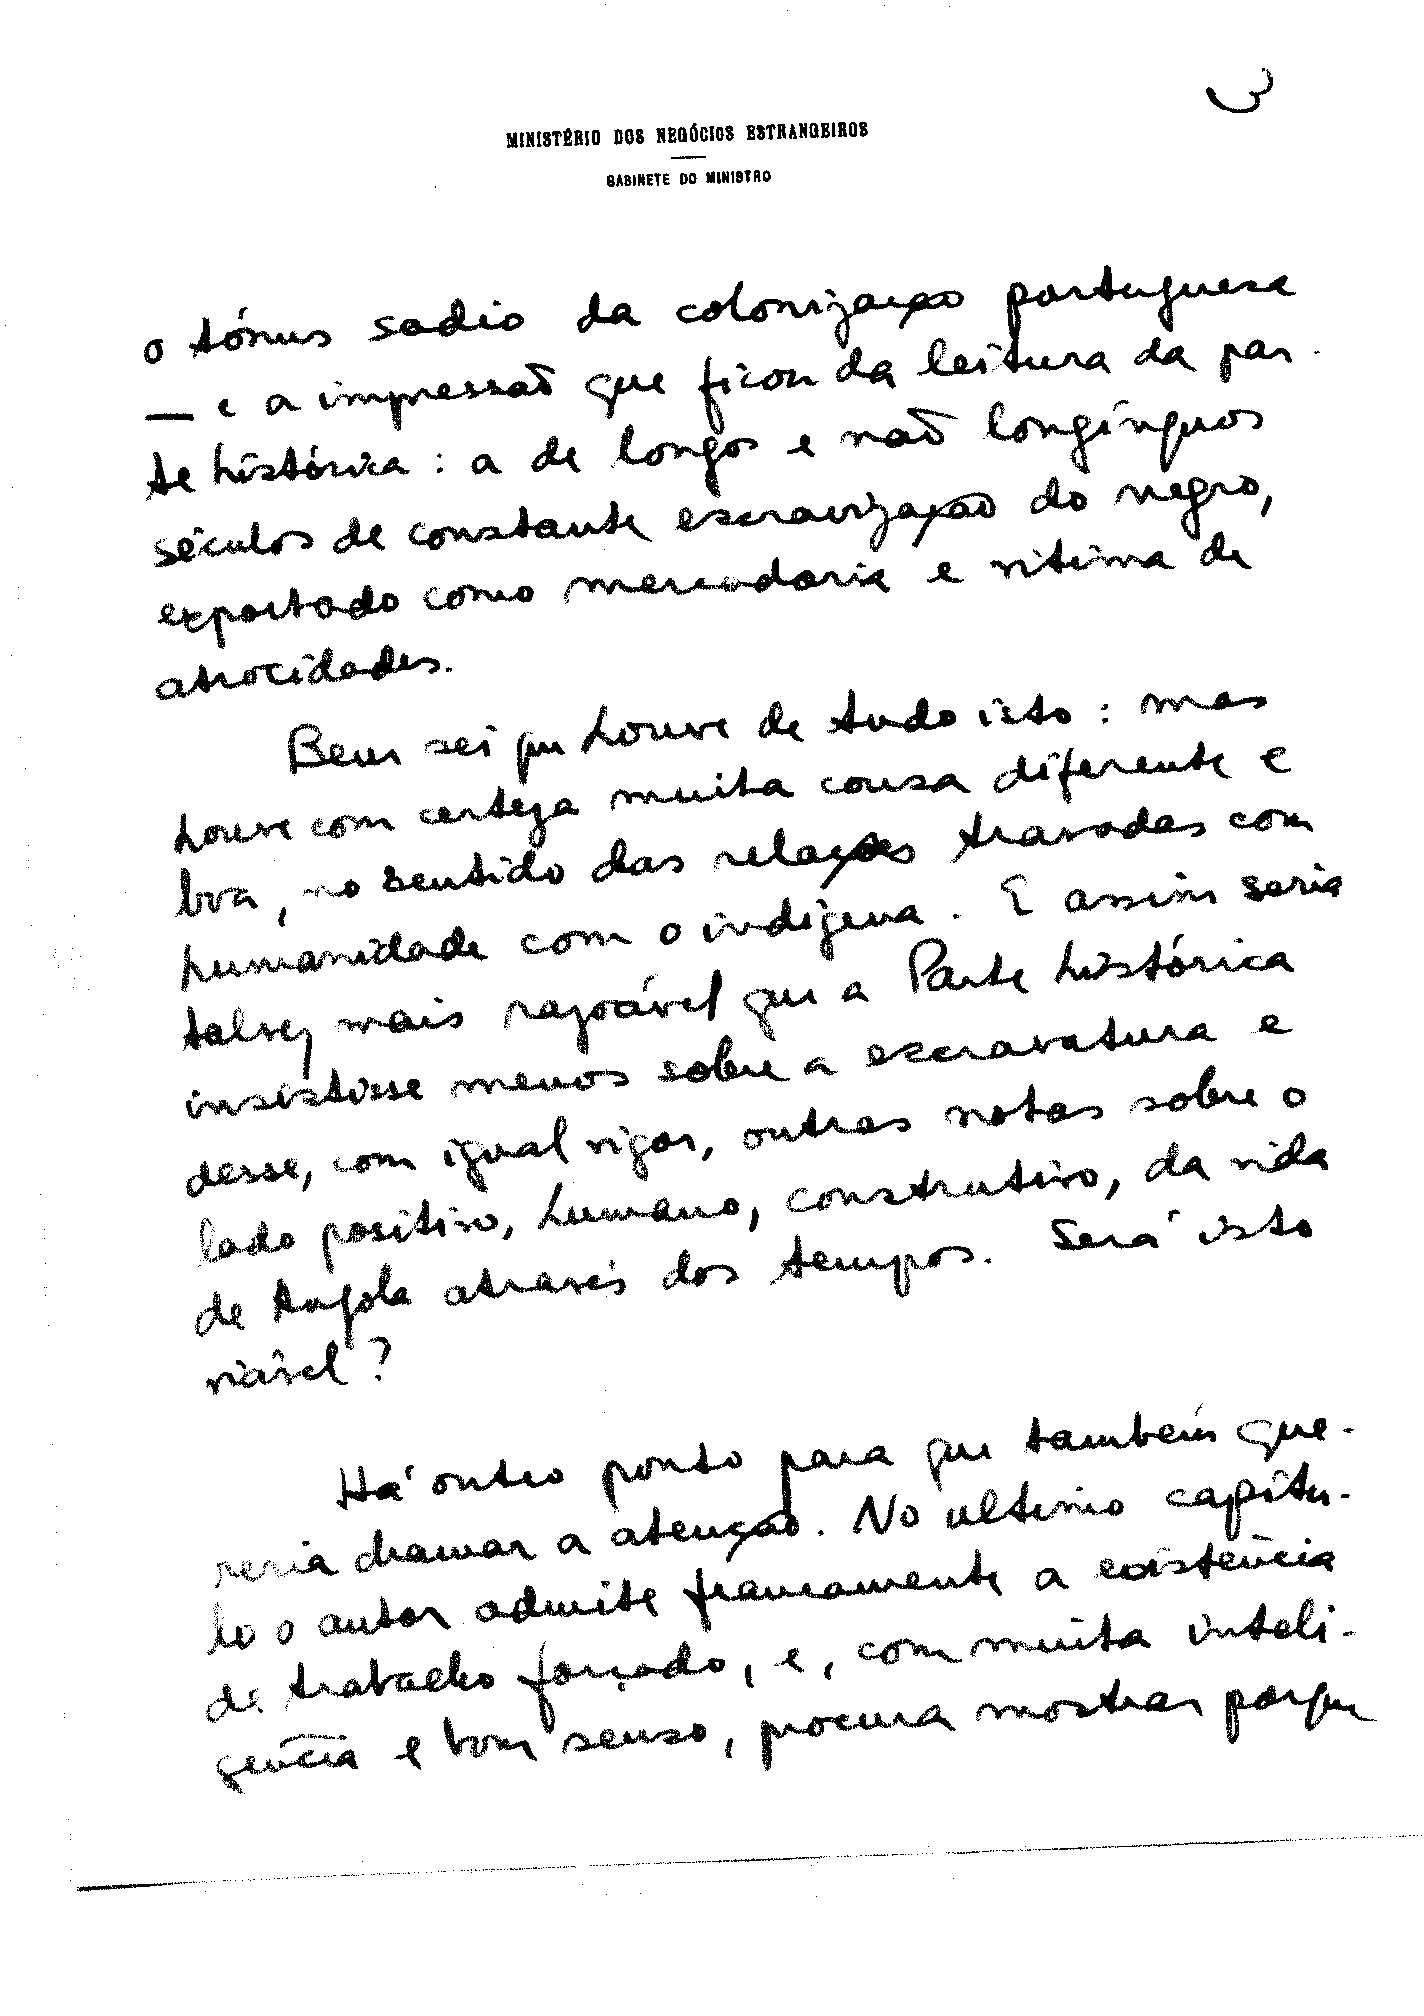 3
MINISTÉRIO DOS NEGÓCIOS ESTRANGEIROS
GABINETE DO MINISTRO
o tónus sadio da colonização portuguesa
— e a impressão que ficou da leitura da par-
te histórica: a de longos e não longínquos
séculos de constante escravização do negro,
exportado como mercadoria e vitima de
atrocidades.
Bem sei que houve de tudo isto: mas
houve com certeza muita cousa diferente e
boa, no sentido das relações travadas com
humanidade com o indígena. E assim seria
talvez mais razoável que a Parte histórica
insistisse menos sobre a escravatura e
desse, com igual vigor, outras notas sobre o
lado positivo, humano, construtivo, da vida
de Angola através dos tempos. Será isto
viável?
Há outro ponto para que também que-
reria chamar a atenção. No ultimo capítu-
lo o autor admite francamente a existência
de trabalho forçado, e, com muita inteli-
gência e bom senso, procura mostrar porque